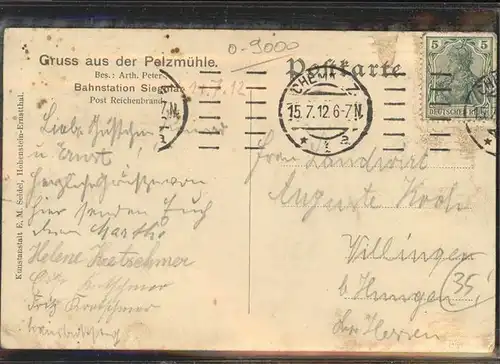 Gruss aus der Pelzmühle.
Bes.: Arth. Peter
Bahnstation Siegmar
Post Reichenbrand
0-9000
17.7.12
Postkarte
5 5
DEUTSCHES REICH
CHEMNITZ
15.7.12.6-7N
* 1 a.
Kunstanstalt E. M. Seidel, Hohenstein-Ernstthal.
Liebe
und Ernst!
Herzliche Grüsse von
hier senden Euch
Martha
Helene Kretschmer
Kretschmer
Fritz Kretschmer
Frau Landwirt
Auguste Koch
Villingen
b Hungen
35,
Hessen